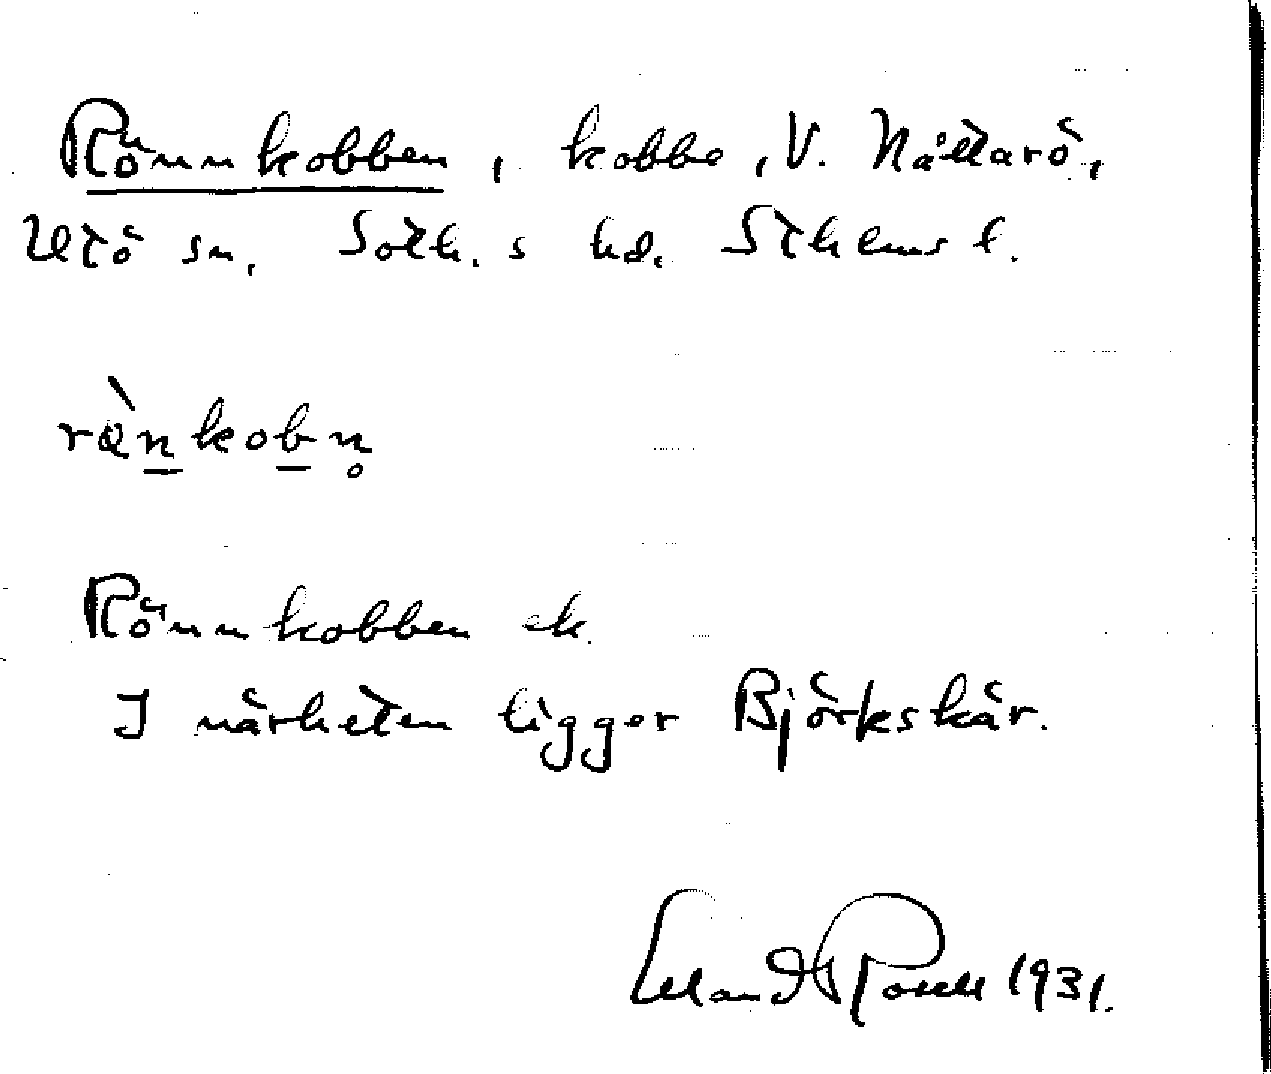 Rönnkobben, kobbe, V. Nåttarö,
Utö sn, Soth.s hd. Sthlms l.
rànkobn̥
Rönnkobben ek.
I närheten ligger Björkskär.
Erland Rosell 1931.